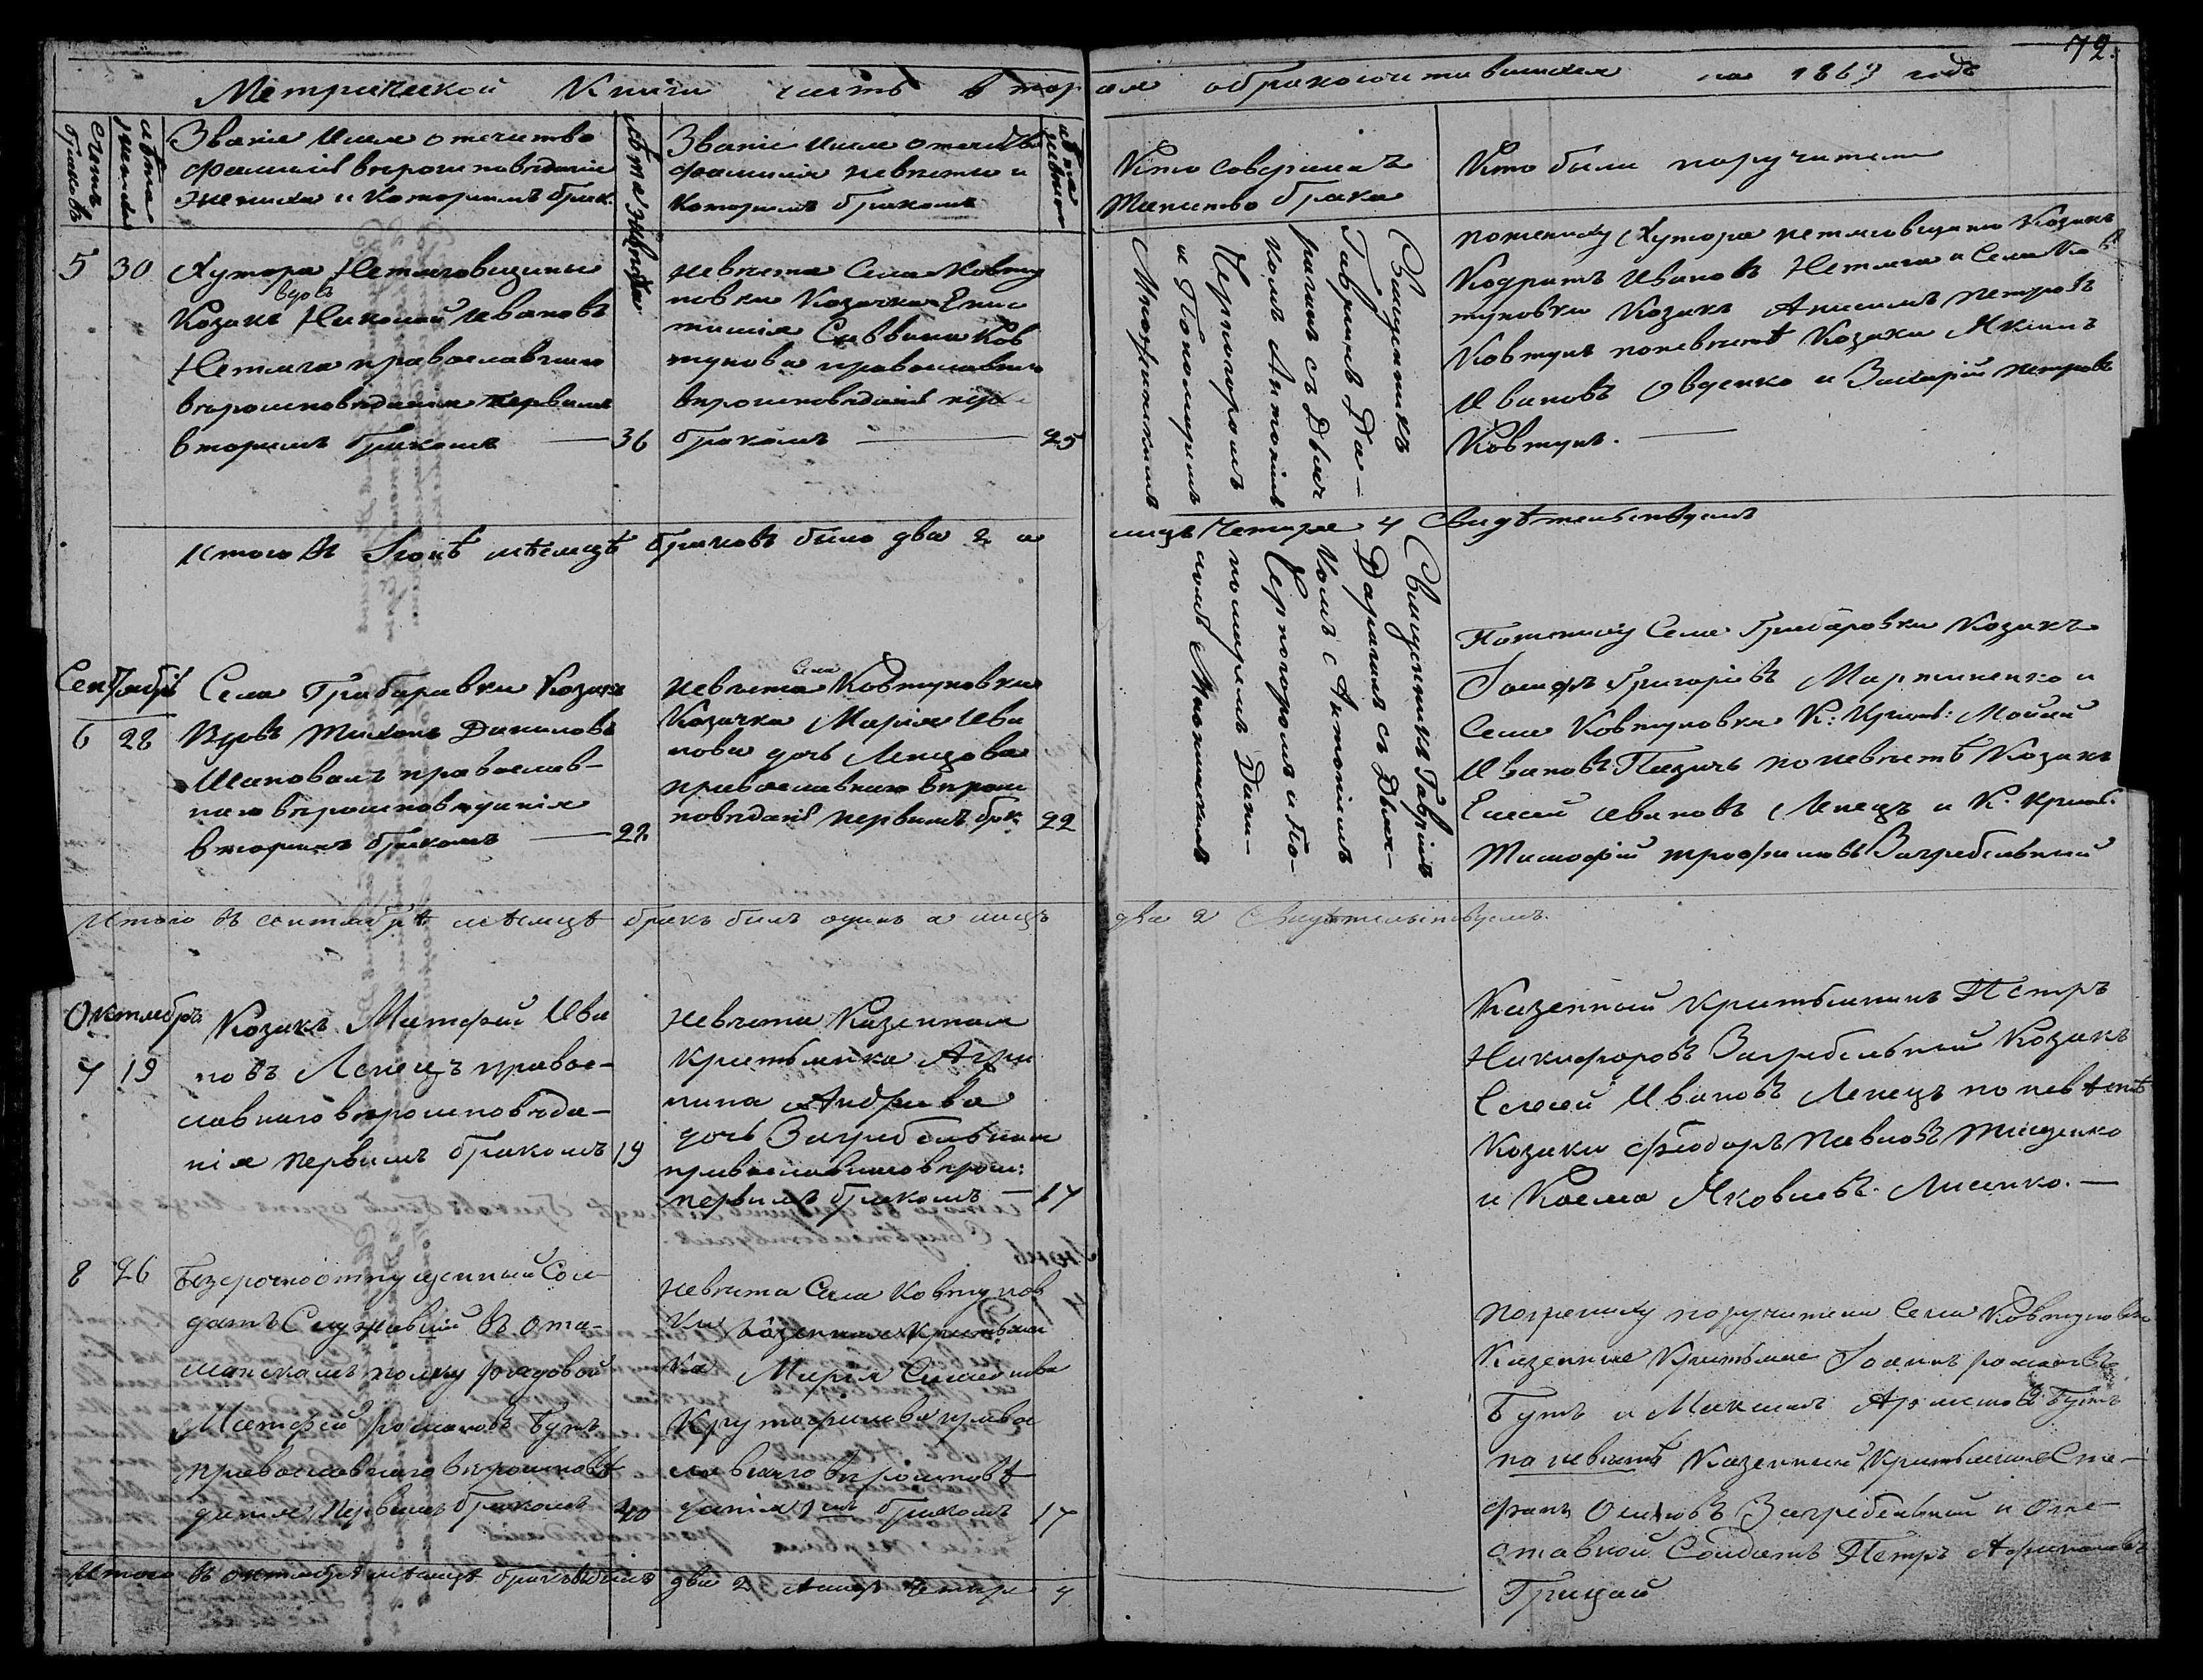 72.
Метрической Книги часть вторая о бракосочетавшихся на 1869 годъ
Счетъ браковъ
Званіе имя отечество
фамилія вѣроисповѣданіе
жениха и которимъ брак.
лѣта жениха
Званіе имя отечество
фамилія невѣсти и
которимъ бракомъ
лѣта невѣсти
Кто совершалъ
таинство брака
Кто били поручители
5 30
Хутора Нетяговщини
вдовъ
Козакъ Николай Ивановъ
Нетяга православнаго
вѣроисповѣданія первимъ
вторимъ бракомъ — 36
невѣста Села Ковту
новки Козачка Епис
тимія Саввина Ков
тунова православнаго
вѣроисповѣданія пер
бракомъ — 25
Священникъ
Гавріилъ Да-
рагинъ съ Дяч
комъ Антоніемъ
Черногоромъ
и Пономаремъ
пожениху Хутора нетяговщини Козакъ
Кодратъ Ивановъ Нетяга и Села Ков
туновки Козакъ Анисимъ петровъ
Ковтунъ поневѣстѣ Козаки Якимъ
Ивановъ Овдѣнко и Захарій петровъ
Ковтунъ. —
Итого въ Іюнѣ мѣсяцѣ браковъ било два 2 а
лицъ четире 4 Свидѣтельствуемъ
Сентябрь
6 28
Села Грабаровки Козакъ
Вдовъ Тихонъ Даниловъ
Шаповалъ православ-
наго вѣроисповѣданія
вторимъ бракомъ — 22
Села
невѣста Ковтуновки
Козачка Марія Ива
нова дочь Лепцова
православнаго вѣрои
повѣданія первимъ брак. 22
Священникъ Гавріилъ
Дарагинъ съ Дьяч-
комъ Антоніемъ
Черногоромъ и По-
номаремъ Дани-
Пожениху Села Грабаровки Козакъ
Іосифъ Григоріевъ Мартиненко и
Села Ковтуновки К: Крит: Мойсей
Ивановъ поневѣстѣ Козакъ
Елисей Ивановъ Лепецъ и К. Крит.
Тимофій трофимовъ Загребельний
Итого въ сентябрѣ мѣсяцѣ бракъ билъ одинъ а лицъ
два 2 Свидѣтельствуемъ.
Октябрь
7 19
Козакъ Матфей Ива
новъ Лепецъ правос-
лавнаго вѣроисповѣда-
нія первимъ бракомъ 19
невѣста Казенная
критьянка Агри
пина Андреева
дочь Загребельная
православнаго вѣрои:
первимъ бракомъ — 17
Казенний критьянинъ Петръ
Никифоровъ Загребельний Козакъ
Елисей Ивановъ Лепецъ по невѣстѣ
Козаки Феодоръ Павловъ Тищенко
и Косма Яковлевъ Лисенко. —
8 26
Безсрочноотпущенний Сол-
датъ Служавший въ Ата-
манскомъ полку рядовой
Матфей романовъ Бутъ
православнаго вѣроисповѣ
данія первимъ бракомъ 40
невѣста Села Ковтунов
ки Казенная Критьян
ка Марія Симеонова
правос
лавнаго вѣроисповѣ
данія 1мъ бракомъ 17
пожениху поручители Села Ковтуновки
Казенние Критьяне Іоаннъ романовъ
Бутъ и Максимъ Бутъ
по невѣстѣ Казенний Критьянинъ Сте-
фанъ Осиповъ Загребельний и отс-
ставной Солдатъ Петръ
Грицай
Итого въ октябрѣ мѣсяцѣ браковъ било два 2 а лицъ четире 4